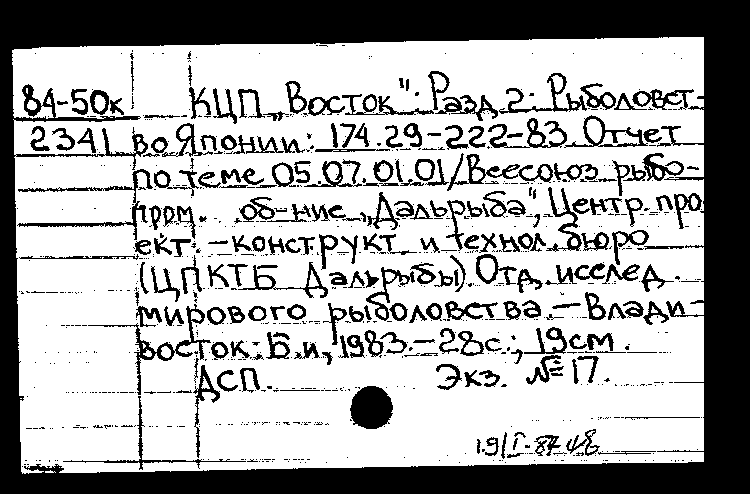 84-50к КЦП „Восток": Разд. 2: Рыболовст-
2341 во Японии: 174.29-222-83. Отчет
по теме 05.07.01.01/Всесоюз. рыбо-
пром. об-ние „Дальрыба", Центр. про
ект. - конструкт. и технол. бюро
(ЦПКТБ Дальрыбы). Отд. исслед.
мирового рыболовства. - Влади-
восток: Б.и., 1983. - 28с.; 19см.
ДСП. Экз. №17.
19/I-84